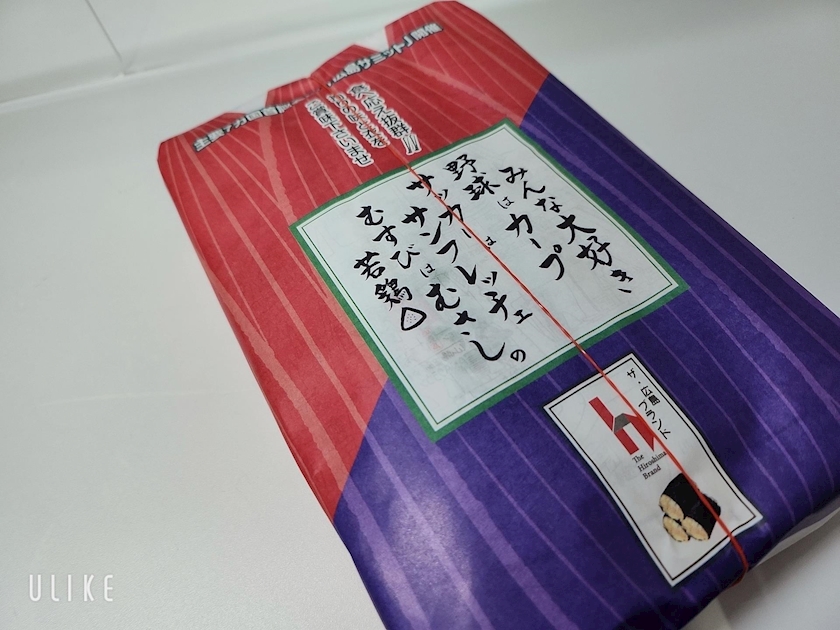 広島サミット」開催
食べ応え抜群!!
ご賞味下さいませ
みんな大好き
野球はカープ
サッカーは
サンフレッチェの
むすびはむさし
若鶏
ザ・広島ブランド
The
Hiroshima
Brand
ULIKE